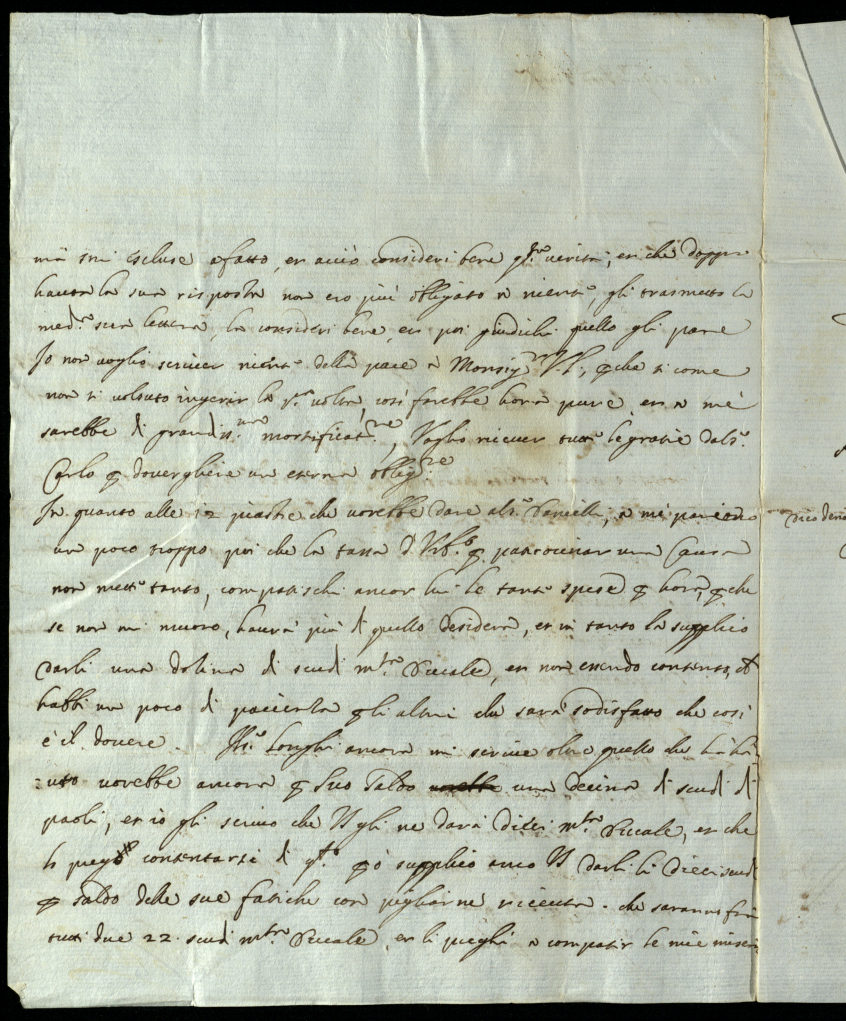 mà mi escluse afatto, et acciò consideri bene qta. verità, et che doppo
hauta la sua risposta non ero più obligato a niente, gli trasmetto la
meda. sua lettera, la consideri bene, et poi giudichi quello gli pare
Io non voglio scriver niente della pace a Monsigre. V.L., p che si come
non si volsuto ingerir la pa. volta, così farebbe hora pure, et a me
sarebbe di grandma. mortificatne., Voglio ricever tutte le gratie dal Sr.
Carlo p dovergliene una eterna obligne.
In quanto alle 12 piastre che vorebbe dare al Sr. Vanielli, a me pareno
un poco troppo poi che la tassa d'Urbo. p patrocinar una Causa
non mette tanto, compatischi ancor lui le tante spese p hora, p che
se non mi muoro, haverà più di quello desidera, et in tanto la supplico
darli una dozina di scudi mta. Ducale, et non essendo contento,
habbi un poco di pacienza p gli altri che sarà sodisfatto che così
è il dovere. Il Sr. Longhi ancora mi scrive oltre quello che hà ha-
:uto vorebbe ancora p suo saldo una decina di scudi di
paoli, et io gli scrivo che VS gli ne darà dieci mta. Ducale, et che
lo prego contentarsi di qto. p ò supplico anco VS darli li dieci scudi
p saldo delle sue fatiche con pigliarne ricevuta. che saranno frà
tutti due 22. scudi mta. Ducale, et li preghi a compatir le mie miserie